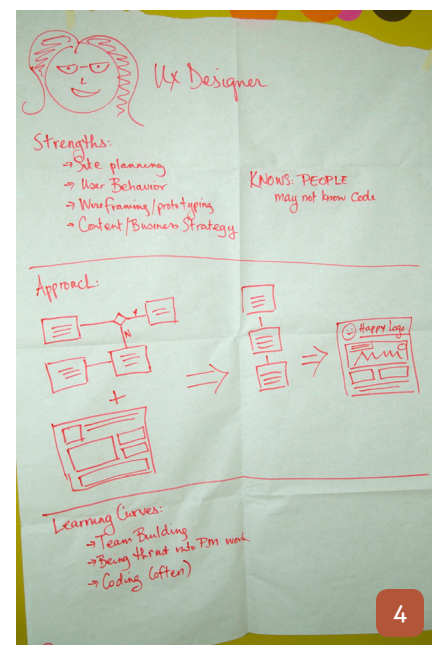 Ux Designer
Strengths:
→ Site planning
→ User Behavior
→ Wireframing/prototyping
→ Content/Business Strategy
KNOWS: PEOPLE
may not know Code
Approach:
Y
N
+
Happy Logo
Learning Curves:
→ Team Building
→ Being thrust into PM work
→ Coding (often)
4